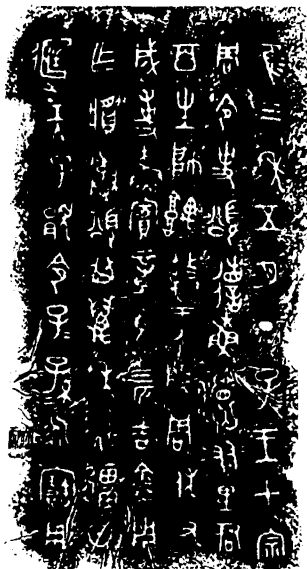 隹三年五月丁巳王才宗
周令史頌省穌友里君
百生帥堣盩于成周休又
成事穌賓章馬四匹吉金用
乍䵼彝頌其萬年無疆日
天子顯令子子孫孫永寶用